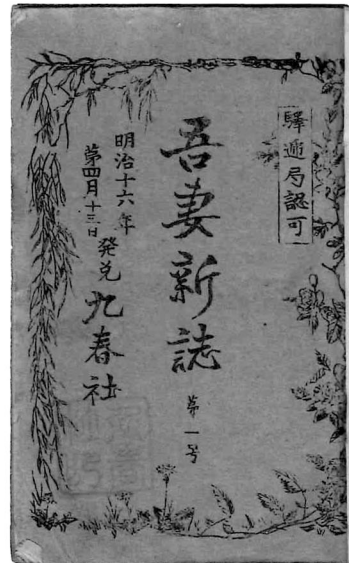 驛逓局認可
吾妻新誌
第一号
明治十六年
第四月十三日
発兌
九春社